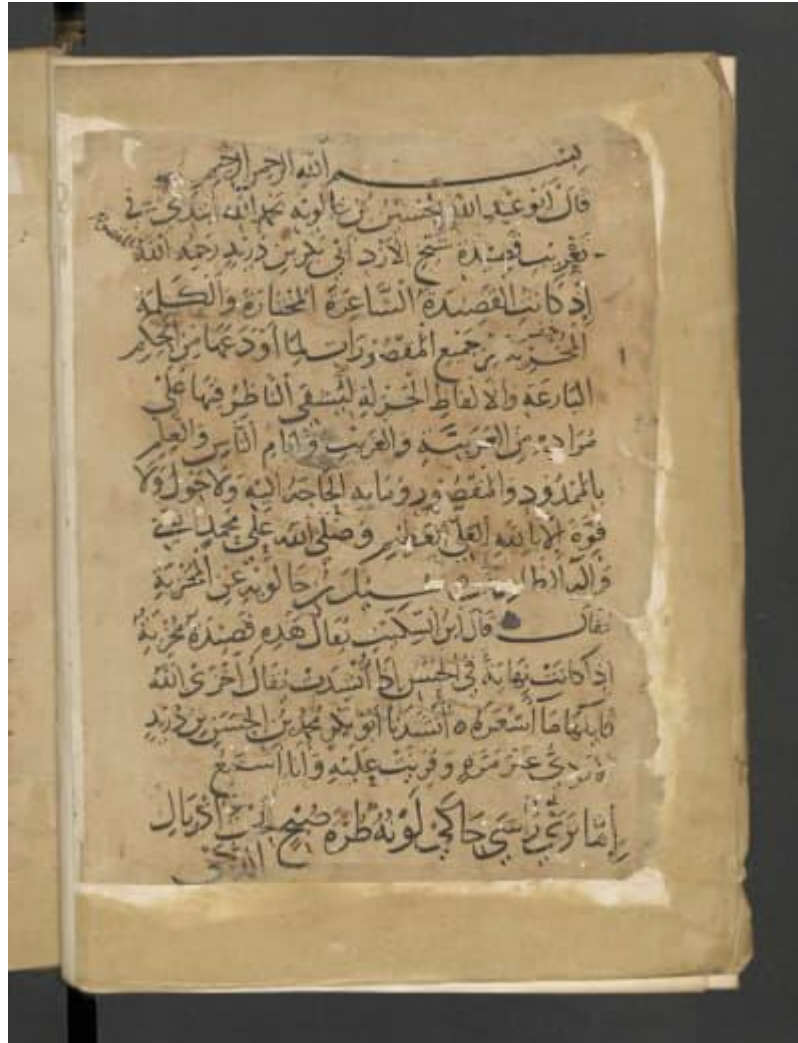 بسم الله الرحمن الرحيم
قال ابو عبد الله الحسين بن خالويه نحمد الله ونبتدئ في
قصيدة شيخ الازد ابي بكر بن دريد رحمه الله
اذ كانت القصيدة الشاعرة المختارة والكلمة
المخزية من جميع المقصورات لما اودعها من الحكم
البارعة والالفاظ الجزلة ليسقى الناظر فيها على
مراده من العربية والغريب وايام الناس والعلم
بالممدود والمقصور وما به الحاجة اليه ولا حول ولا
قوة الا بالله العلي العظيم وصلى الله على محمد النبي
واله الطاهرين سئل بن خالويه عن المخزية
فقال قال ابن السكيت يقال هذه قصيدة مخزية
اذ كانت نهاية في الحسن اذا انشدت يقال اخزى الله
قايلها ما اشعره ه انشدنا ابو بكر محمد بن الحسن بن دريد
غير مرة وقريت عليه وانا اسمع
اما تري راسي حاكي لونه طرة صبح تحت اذيال
الدجى